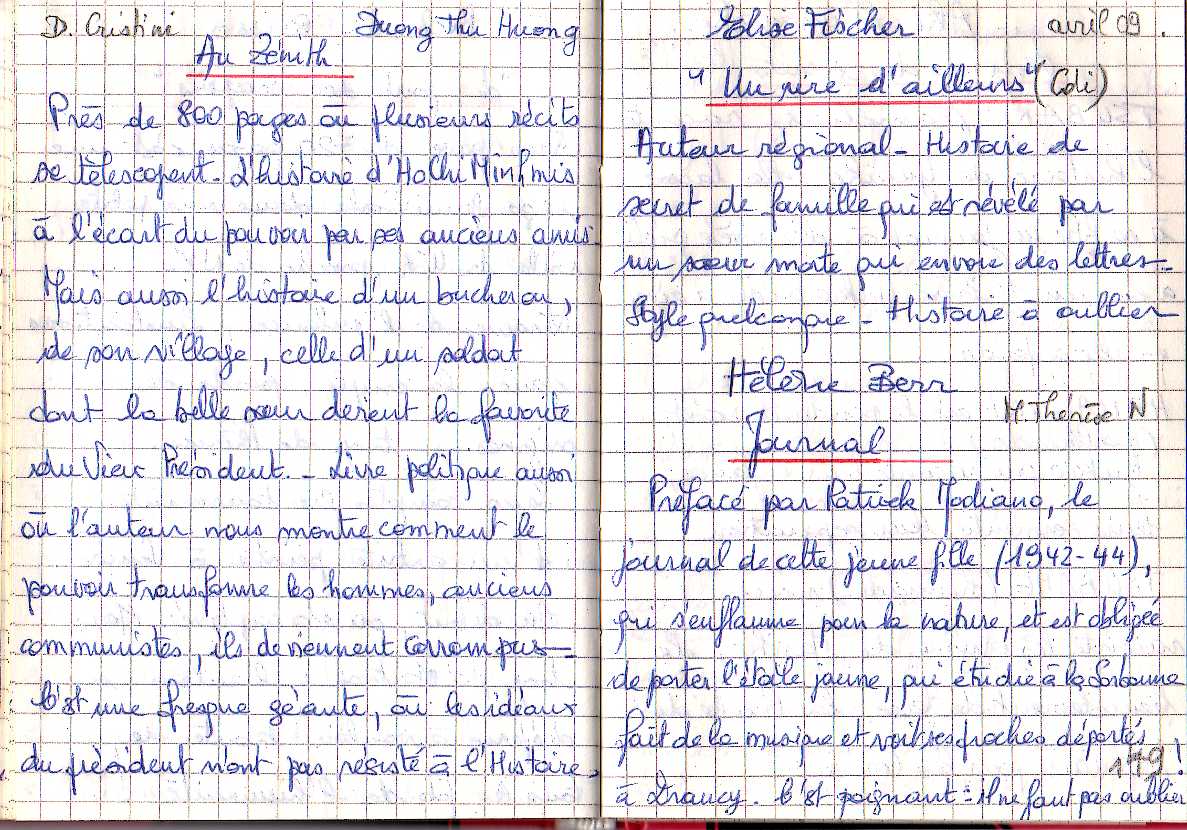 D. Cristini Duong Thu Huong
Au Zénith
Près de 800 pages où plusieurs récits
se télescopent - L'histoire d'Ho Chi Minh mis
à l'écart du pouvoir par ses anciens amis.
Mais aussi l'histoire d'un bucheron,
de son village, celle d'un soldat
dont la belle sœur devient la favorite
du Vieux Président. - Livre politique aussi
où l'auteur nous montre comment le
pouvoir transforme les hommes, anciens
communistes, ils deviennent corrompus -
C'est une fresque géante, où les idéaux
du président n'ont pas résisté à l'Histoire.
Elise Fischer avril 09.
"Un rire d'ailleurs" (Cdi)
Auteur régional - Histoire de
secret de famille qui est révélé par
un sœur morte qui envoie des lettres -
Style quelconque - Histoire à oublier -
Hélène Berr
M. Thérèse N
Journal
Préfacé par Patrick Modiano, le
journal de cette jeune fille (1942-44),
qui s'enflamme pour la nature, et est obligée
de porter l'étoile jaune, qui étudie à la Sorbonne
fait de la musique et voit ses proches déportés
à Drancy. C'est poignant = Il ne faut pas oublier
179!